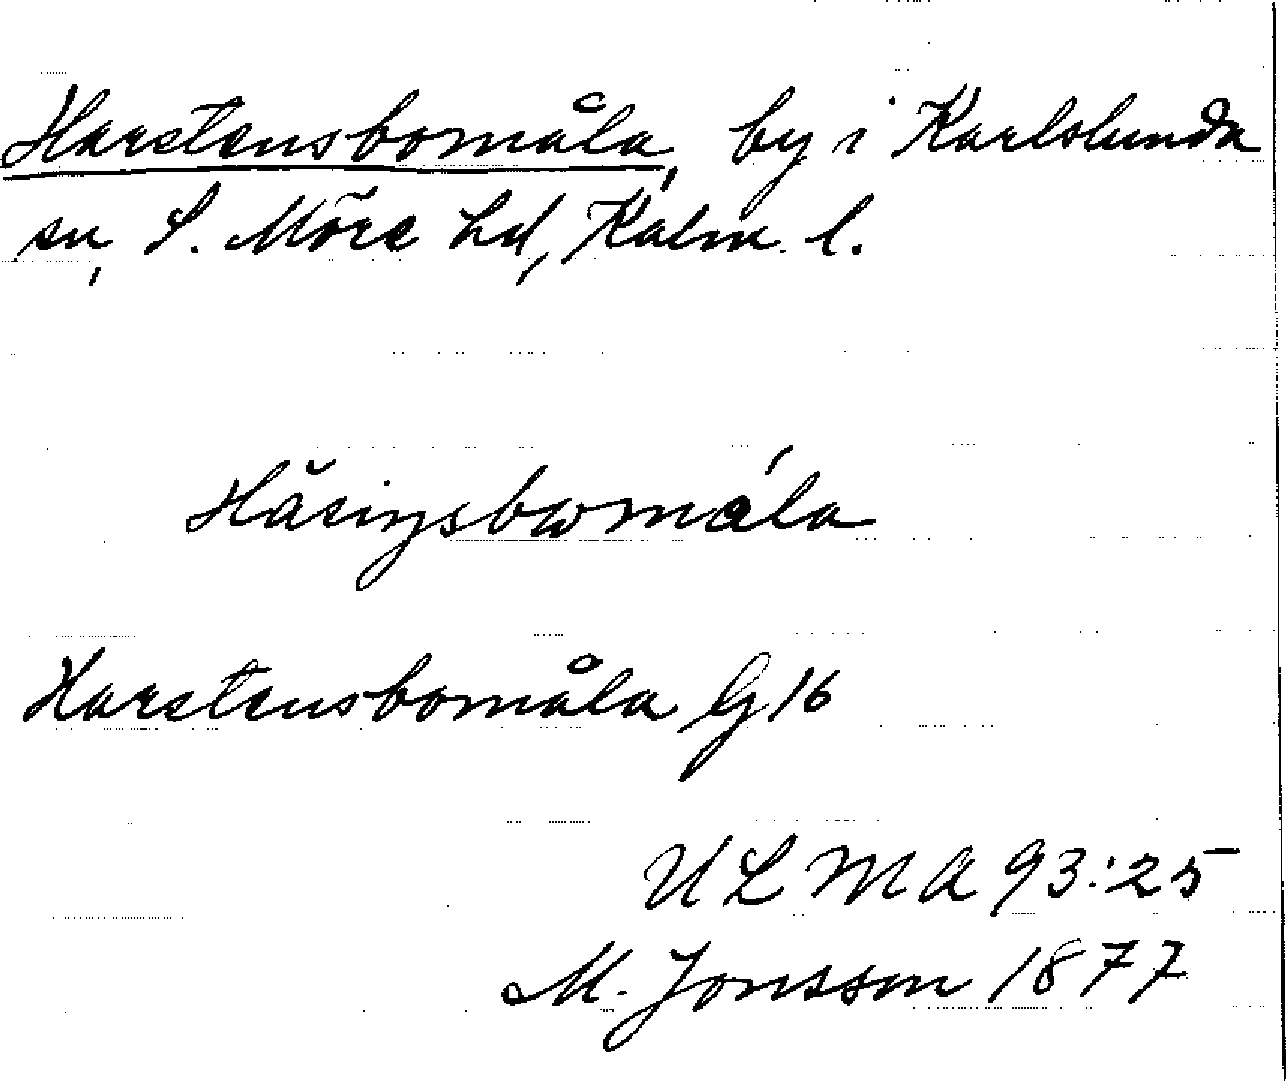 Harstensbomåla, by i Karlslunda
sn, S. Möre hd, Kalm. l.
Harstensbomåla G 16
ULMA 93:25
M. Jonsson 1877